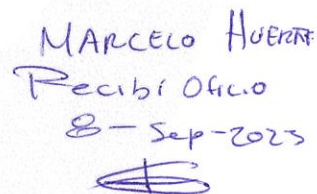 MARCELO HUERTA
Recibí Oficio
8-Sep-2023